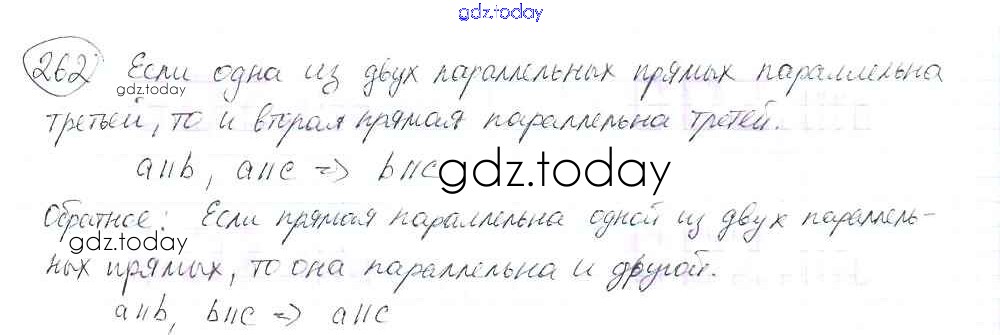 gdz.today
262 Если одна из двух параллельных прямых параллельна
gdz.today
третьей, то и вторая прямая параллельна третей.
a||b, a||c => b||c
gdz.today
Обратное: Если прямая параллельна одной из двух параллель-
gdz.today
ных прямых, то она параллельна и другой.
a||b, b||c => a||c